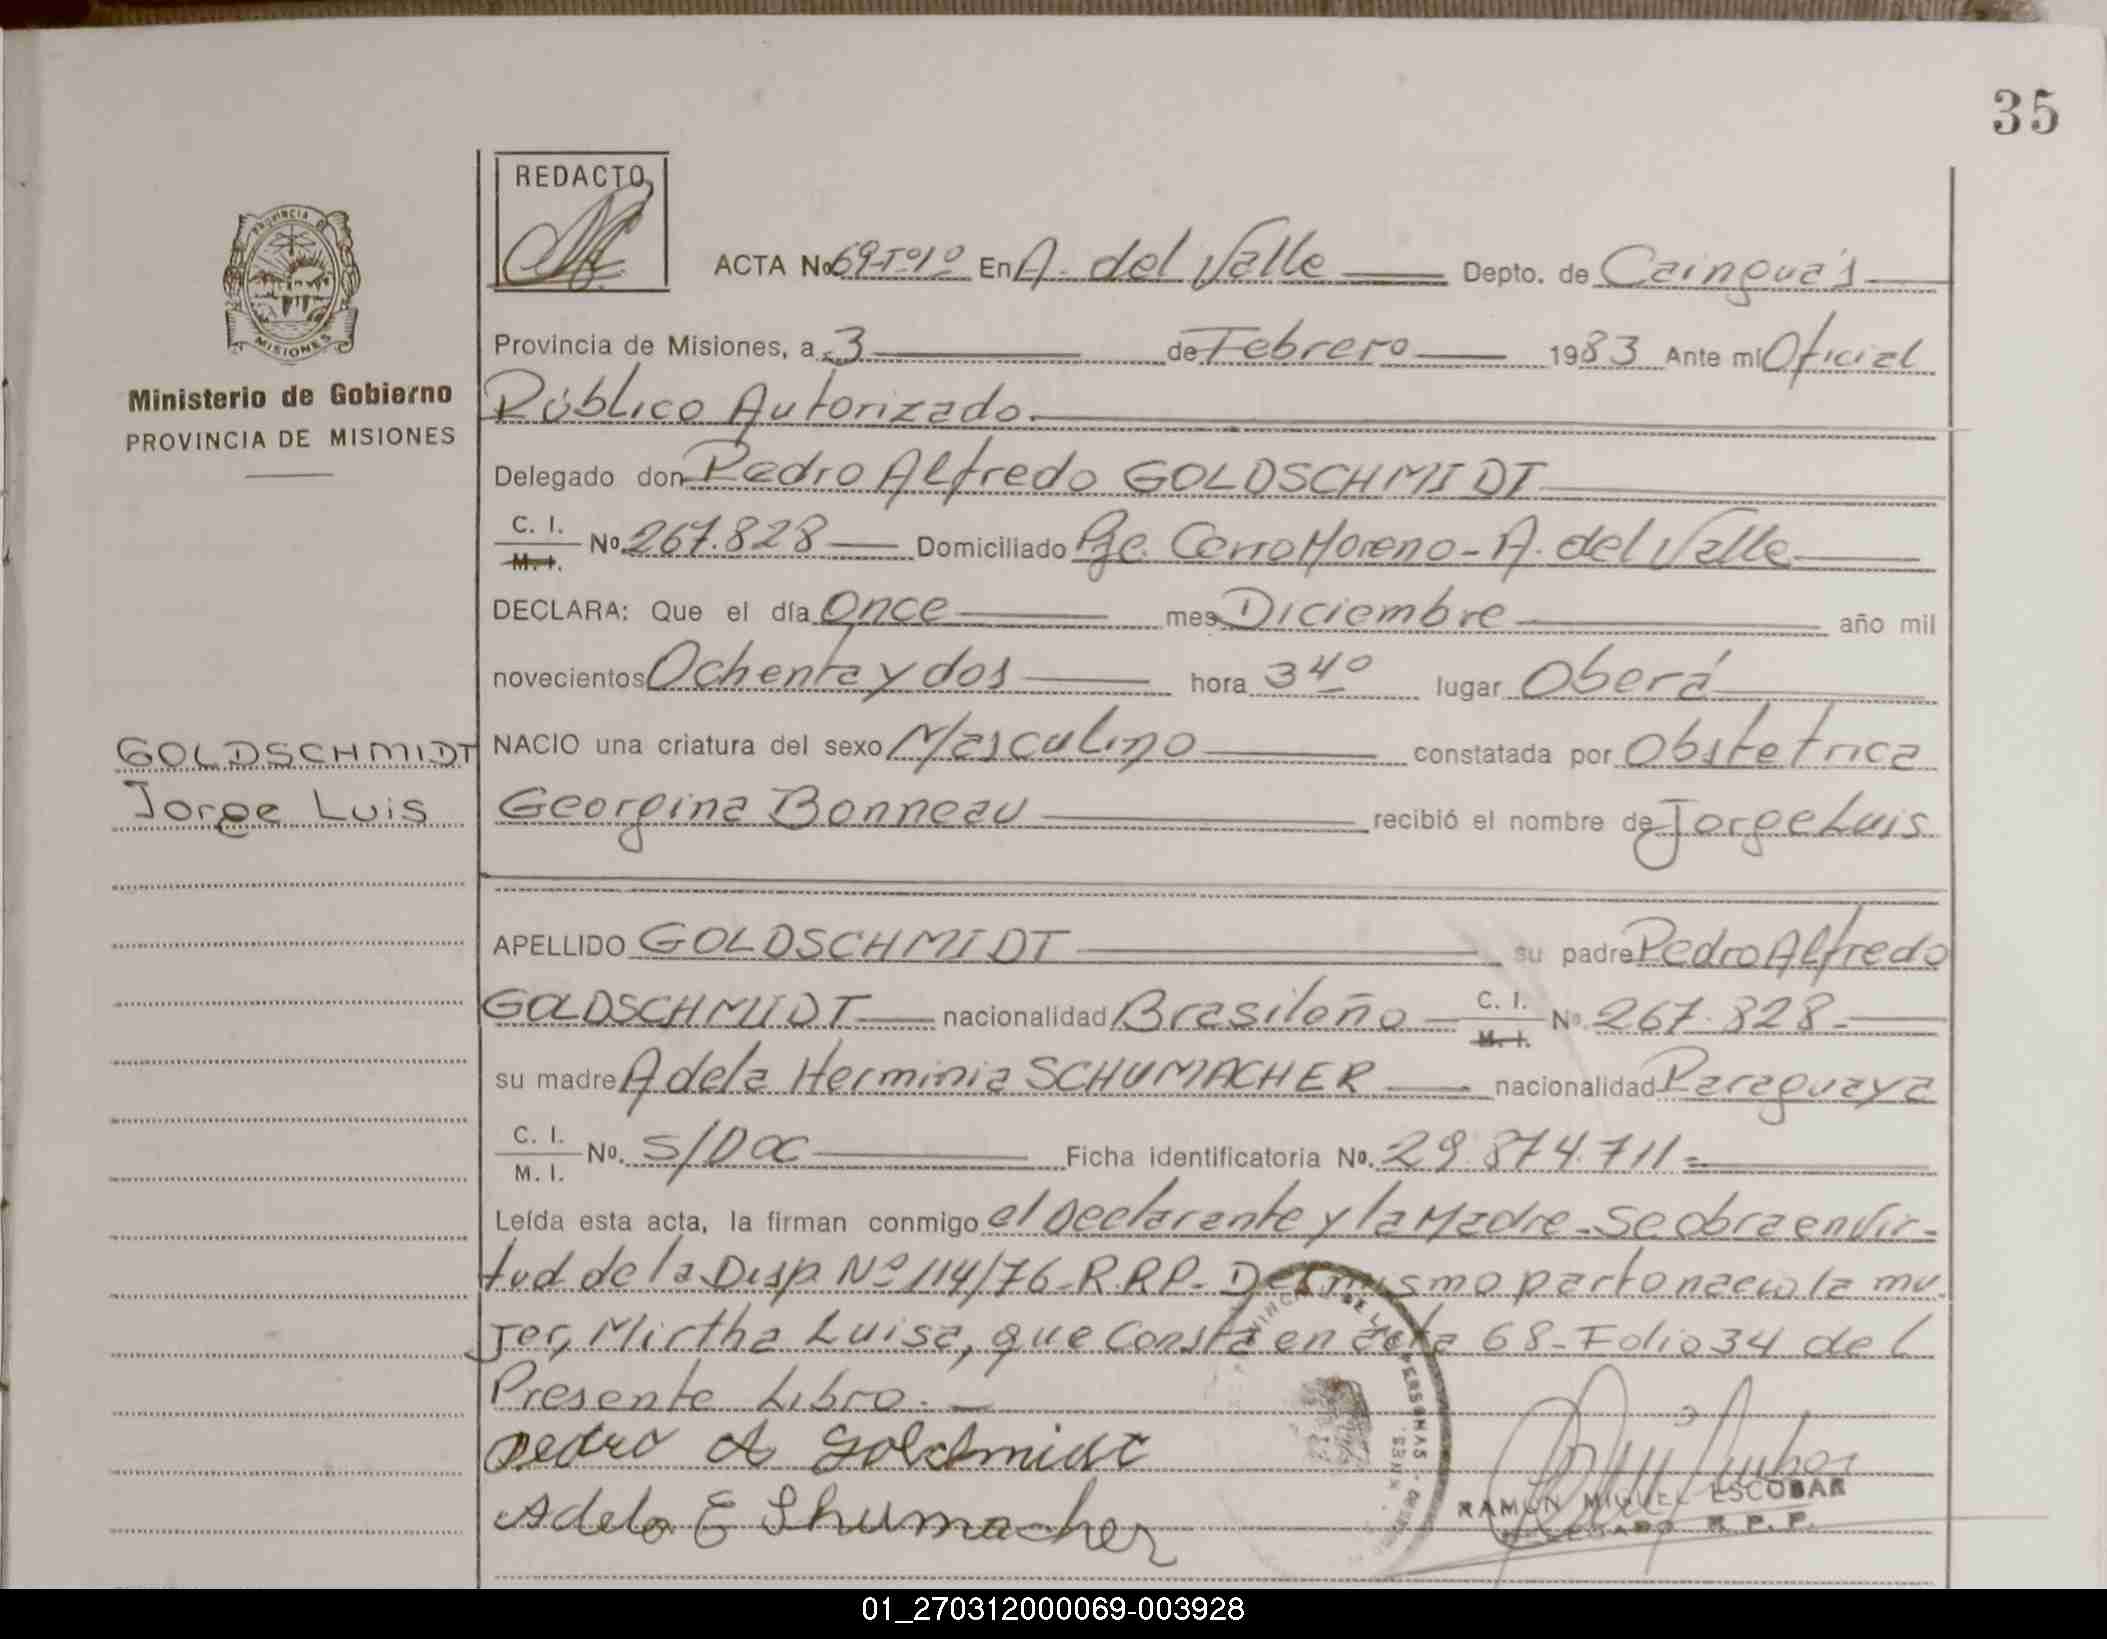 35
REDACTO
ACTA No 69-Tº1º En A. del Valle Depto. de Cainguás
PROVINCIA
MISIONES
Provincia de Misiones, a 3 de Febrero 1983 Ante mí Oficial
Ministerio de Gobierno
PROVINCIA DE MISIONES
Público Autorizado
Delegado don Pedro Alfredo GOLDSCHMIDT
C. I.
M. I. No 267.828 Domiciliado Pje. Cerro Moreno - A. del Valle
DECLARA: Que el día Once mes Diciembre año mil
novecientos Ochenta y dos hora 3 40 lugar Oberá
GOLDSCHMIDT
Jorge Luis
NACIO una criatura del sexo Masculino constatada por Obstetrica
Georgina Bonneau recibió el nombre de Jorge Luis
APELLIDO GOLDSCHMIDT su padre Pedro Alfredo
GOLDSCHMIDT nacionalidad Brasileño C. I.
M. I. No. 267.828
su madre Adela Herminia SCHUMACHER nacionalidad Paraguaya
C. I.
M. I. No. S/Doc Ficha identificatoria No. 29.874.711=
Leída esta acta, la firman conmigo el Declarante y la Madre - Se obra en vir-
tud de la Disp. Nº 114/76-R.R.P- Del mismo parto nacio la mu-
jer, Mirtha Luisa, que Consta en acta 68-Folio 34 del
Presente Libro.-
Pedro A Goldsmidt
Adela E Shumacher
PERSONAS
RAMON MIGUEL ESCOBAR
DELEGADO R. P. P.
01_270312000069-003928